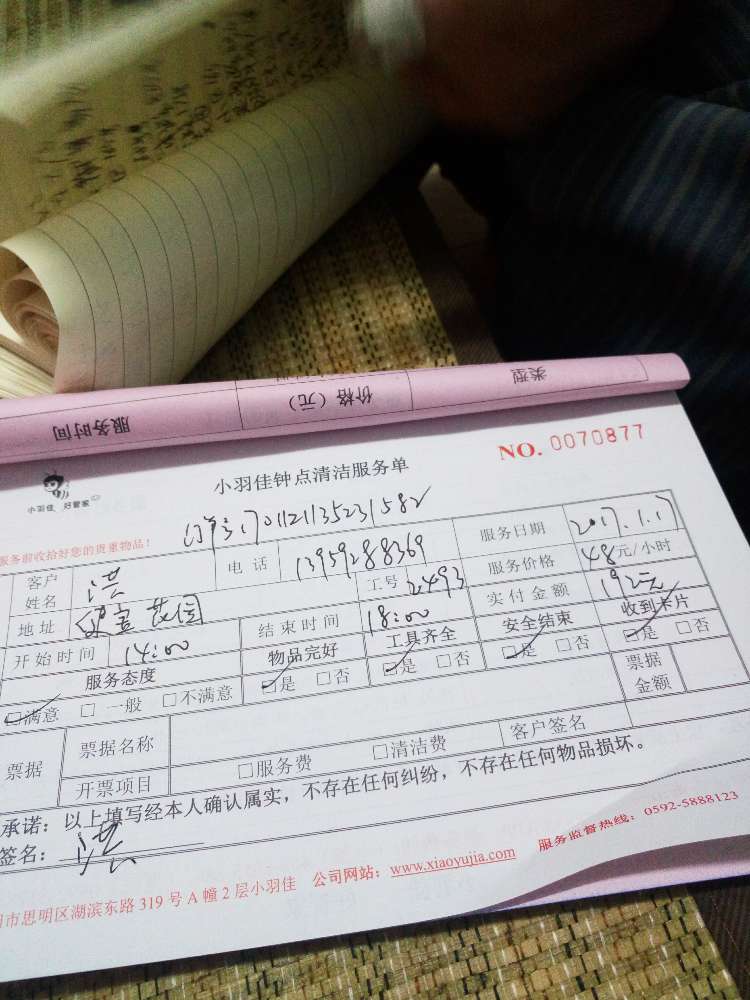 类型
价格（元）
服务时间
NO. 0070877
小羽佳 好管家
小羽佳钟点清洁服务单
服务前收拾好您的贵重物品！
1701121135231582
客户姓名 洪 电话 13959288369 服务日期 2017.1.17
地址 建宝花园 工号 2493 服务价格 48元/小时
开始时间 14:00 结束时间 18:00 实付金额 192元
服务态度 物品完好 工具齐全 安全结束 收到卡片
☑满意 □一般 □不满意 ☑是 □否 ☑是 □否 ☑是 □否 ☑是 □否
票据 票据名称 票据金额
开票项目 □服务费 □清洁费 客户签名
承诺：以上填写经本人确认属实，不存在任何纠纷，不存在任何物品损坏。
签名：洪
市思明区湖滨东路 319 号 A 幢 2 层小羽佳 公司网站：www.xiaoyujia.com 服务监督热线：0592-5888123